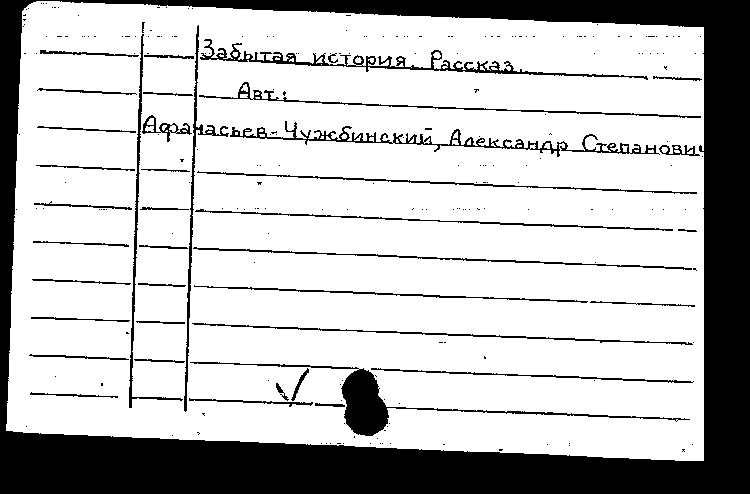 Забытая история. Рассказ.
Авт.:
Афанасьев-Чужбинский, Александр Степанович